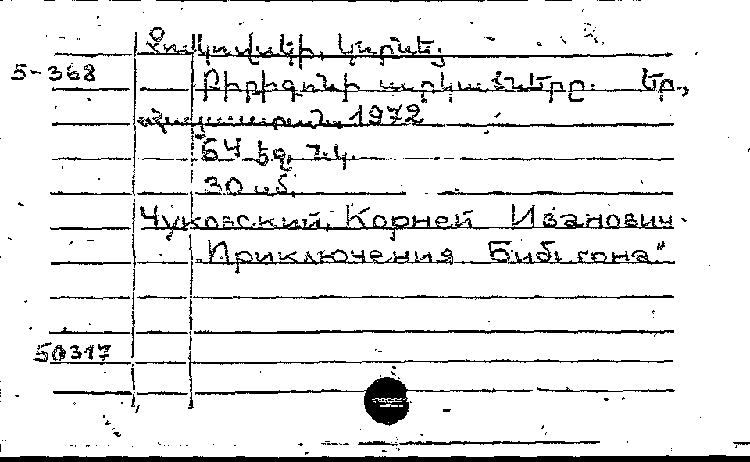 Չուկովսկի, Կորնեյ
5-368
Բիբիգոնի արկածները. Եր.,
Հայաստան, 1972
64 էջ, նկ.
30 կ.
Чуковский, Корней Иванович.
"Приключения Бибигона"
50317